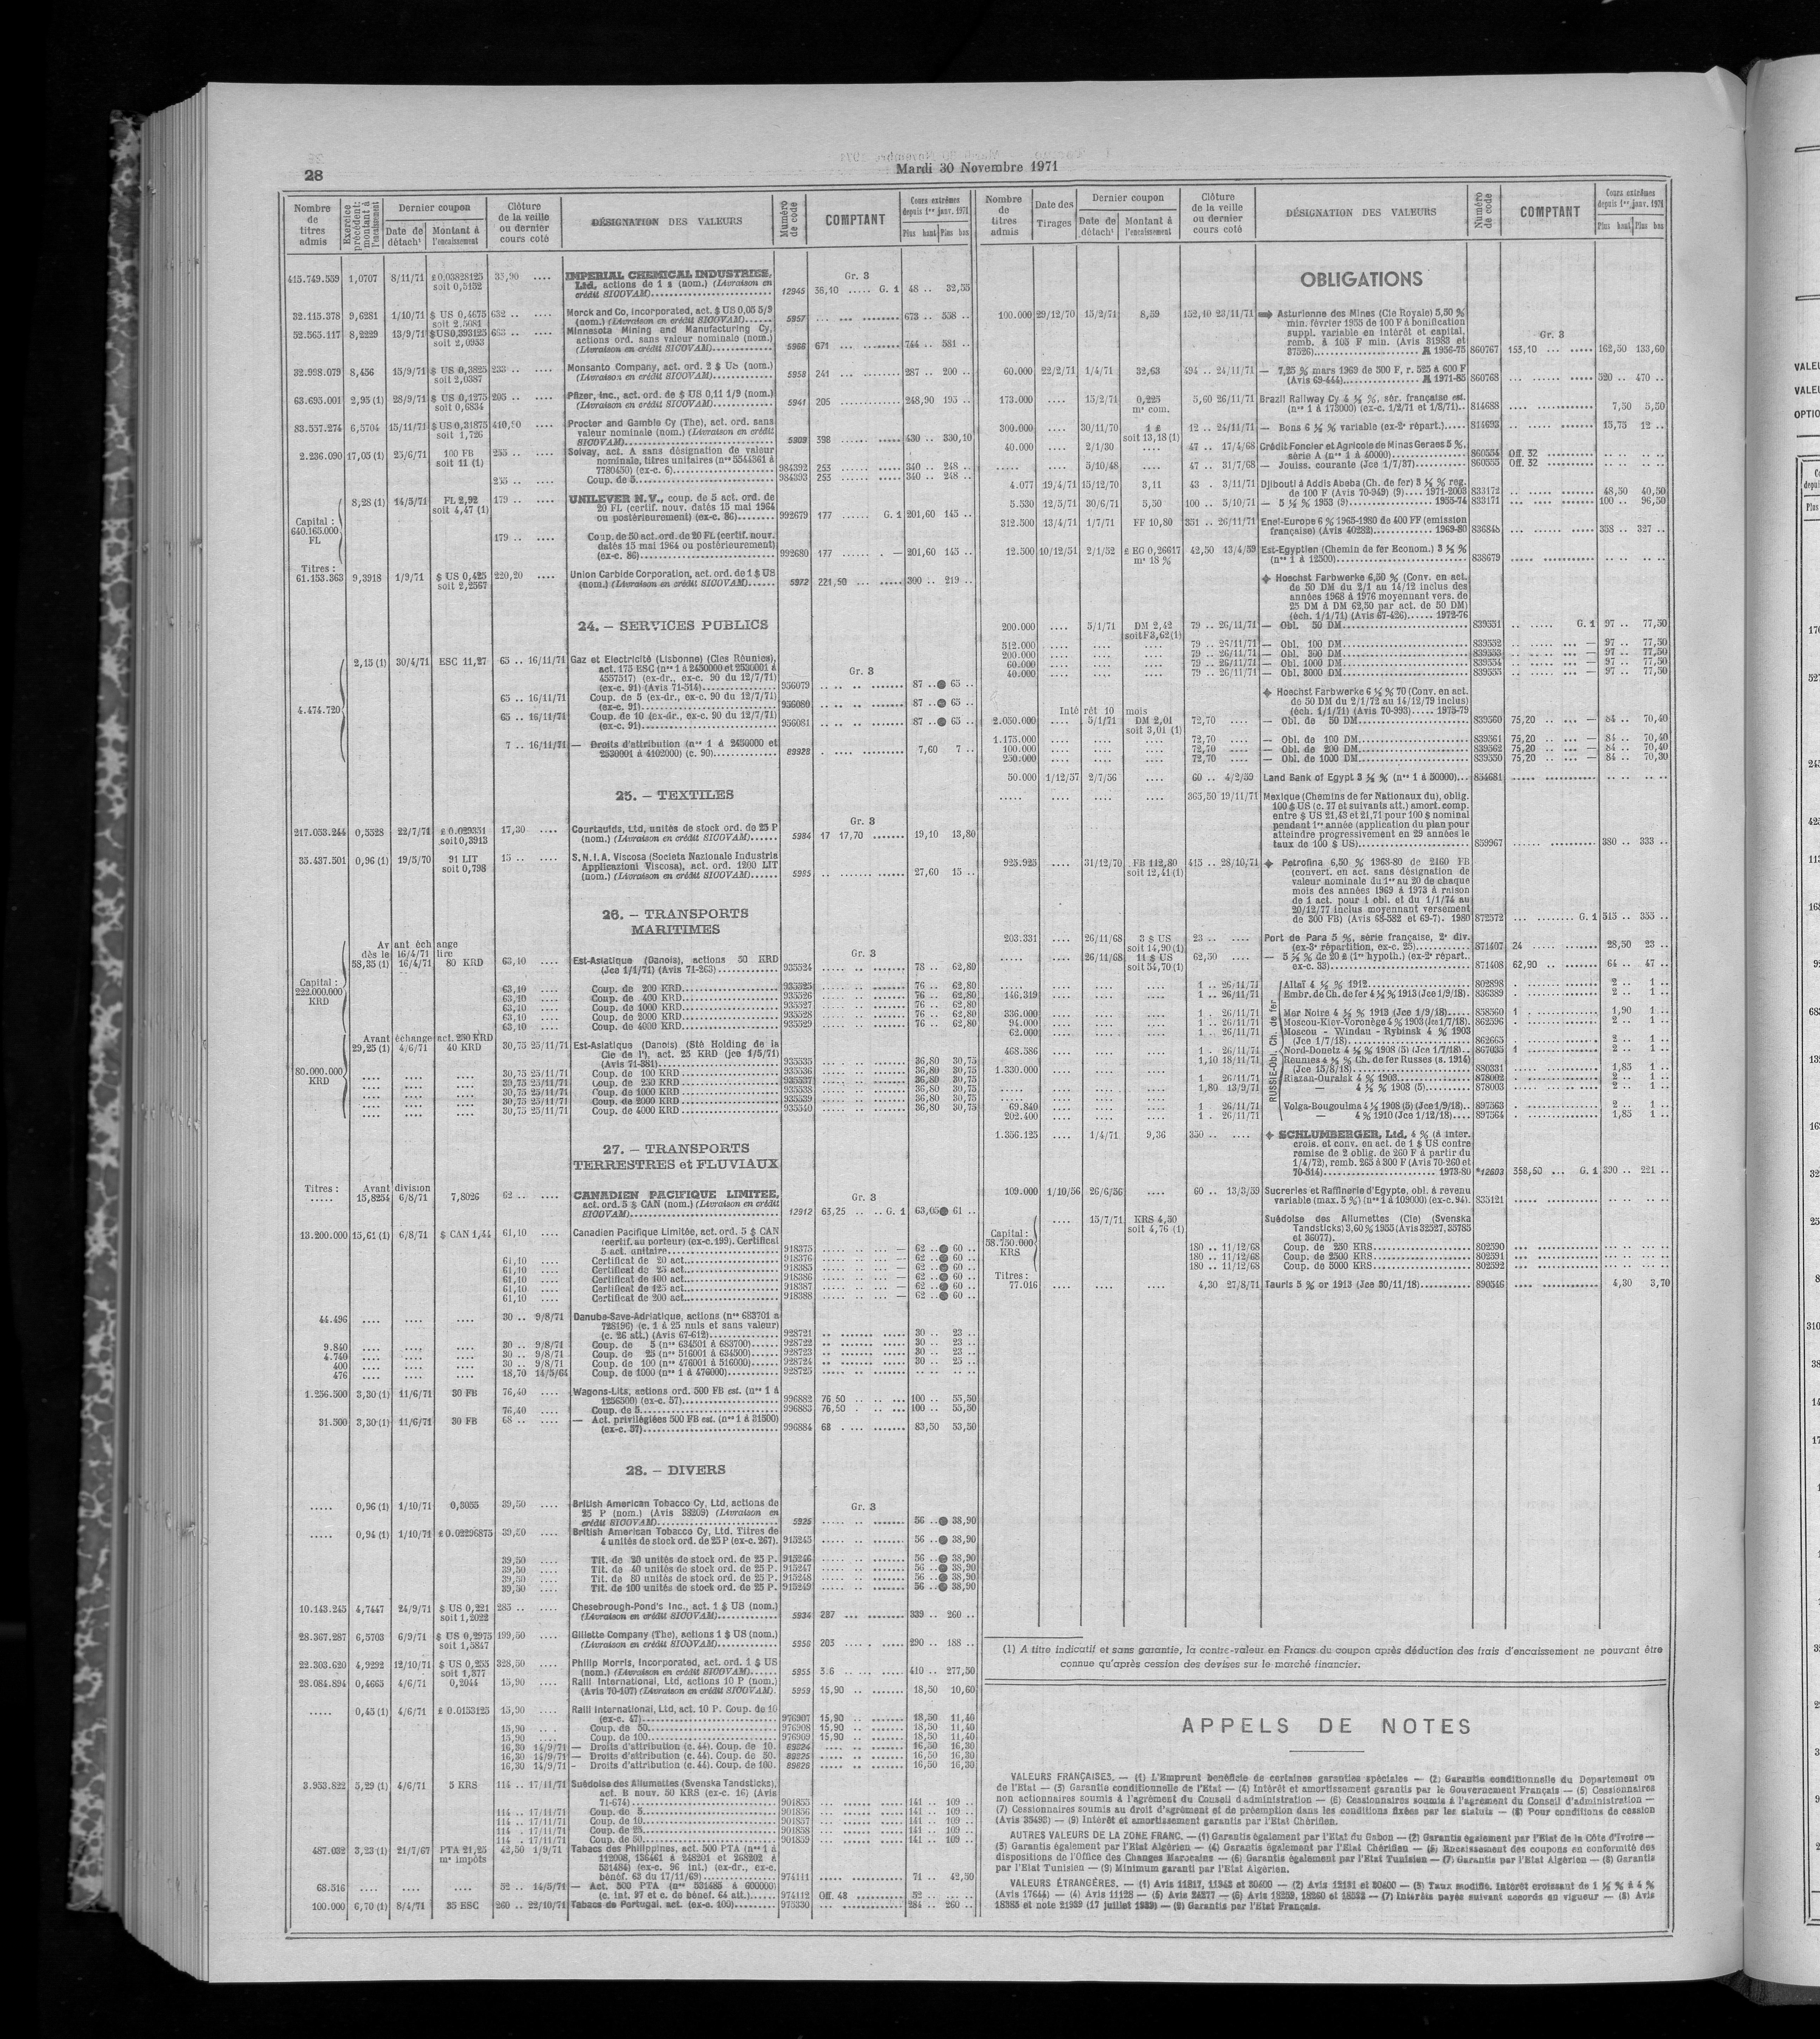 28
Mardi 30 Novembre 1971
Nombre de titres admis
Exercice précédent: montant à l'encaissement
Dernier coupon
Date de détach¹
Montant à l'encaissement
Clôture de la veille ou dernier cours coté
DÉSIGNATION DES VALEURS
Numéro de code
COMPTANT
Cours extrêmes depuis 1er janv. 1971
Plus haut Plus bas
Gr. 3
415.749.559 1,0707 8/11/71 £0.03828125 35,90 .... IMPERIAL CHEMICAL INDUSTRIES,
soit 0,5152 Ltd, actions de 1 £ (nom.) (Livraison en
crédit SICOVAM) 12945 36,10 ..... G. 1 48 .. 32,55
32.115.378 9,6281 1/10/71 $ US 0,4675 632 .. .... Merck and Co, incorporated, act. $ US 0,05 5/9
soit 2,5081 (nom.) (Livraison en crédit SICOVAM) 5957 ... ... ........ 673 .. 558 ..
52.565.117 8,2229 13/9/71 $US0,393125 663 .. .... Minnesota Mining and Manufacturing Cy,
soit 2,0953 actions ord. sans valeur nominale (nom.)
(Livraison en crédit SICOVAM) 5966 671 ... ........ 744 .. 581 ..
32.998.079 8,456 15/9/71 $ US 0,3825 233 .. .... Monsanto Company, act. ord. 2 $ US (nom.)
soit 2,0387 (Livraison en crédit SICOVAM) 5958 241 ... ........ 287 .. 200 ..
63.695.001 2,95 (1) 28/9/71 $ US 0,1275 205 .. .... Pfizer, Inc., act. ord. de $ US 0,11 1/9 (nom.)
soit 0,6834 (Livraison en crédit SICOVAM) 5941 205 ........ 248,90 195 ..
83.557.274 6,5704 15/11/71 $US0,31875 410,50 .... Procter and Gamble Cy (The), act. ord. sans
soit 1,726 valeur nominale (nom.) (Livraison en crédit
SICOVAM) 5909 398 ........ 430 .. 330,10
2.236.090 17,05 (1) 25/6/71 100 FB 255 .. .... Solvay, act. A sans désignation de valeur
soit 11 (1) nominale, titres unitaires (nos 5544361 à
7780450) (ex-c. 6) 984392 253 ........ 340 .. 248 ..
255 .. .... Coup. de 5 984393 255 ........ 340 .. 248 ..
8,28 (1) 14/5/71 FL 2,92 179 .. .... UNILEVER N.V., coup. de 5 act. ord. de
soit 4,47 (1) 20 FL (certif. nouv. datés 15 mai 1964
ou postérieurement) (ex-c. 86) 992679 177 ...... G. 1 201,60 145 ..
Capital : 640.165.000 FL
179 .. .... Coup. de 50 act. ord. de 20 FL (certif. nouv.
datés 15 mai 1964 ou postérieurement)
(ex-c. 86) 992680 177 ...... . — 201,60 145 ..
Titres :
61.153.363 9,3918 1/9/71 $ US 0,425 220,20 .... Union Carbide Corporation, act. ord. de 1 $ US
soit 2,2567 (nom.) (Livraison en crédit SICOVAM) 5972 221,50 ... ...... 300 .. 219 ..
24. — SERVICES PUBLICS
Gr. 3
2,15 (1) 30/4/71 ESC 11,27 65 .. 16/11/71 Gaz et Electricité (Lisbonne) (Cies Réunies),
act. 175 ESC (nos 1 à 2450000 et 2530001 à
4557517) (ex-dr., ex-c. 90 du 12/7/71)
(ex-c. 91) (Avis 71-514) 956079 .. .. .. ........ 87 .. 65 ..
4.474.720
65 .. 16/11/71 Coup. de 5 (ex-dr., ex-c. 90 du 12/7/71)
(ex-c. 91) 956080 87 .. 65 ..
65 .. 16/11/71 Coup. de 10 (ex-dr., ex-c. 90 du 12/7/71)
(ex-c. 91) 956081 87 .. 65 ..
7 .. 16/11/71 — Droits d'attribution (nos 1 à 2450000 et
2530001 à 4102000) (c. 90) 89928 7,60 7 ..
25. — TEXTILES
Gr. 3
217.053.244 0,5528 22/7/71 £ 0.029351 17,30 .... Courtaulds, Ltd, unités de stock ord. de 25 P
soit 0,3913 (nom.) (Livraison en crédit SICOVAM) 5984 17 17,70 ....... 19,10 13,80
35.437.501 0,96 (1) 19/5/70 91 LIT 15 .. .... S.N.I.A. Viscosa (Societa Nazionale Industria
soit 0,798 Applicazioni Viscosa), act. ord. 1200 LIT
(nom.) (Livraison en crédit SICOVAM) 5985 27,60 15 ..
26. — TRANSPORTS
MARITIMES
Avant échange
dès le 16/4/71 lire
Gr. 3
58,35 (1) 16/4/71 80 KRD 63,10 .... Est-Asiatique (Danois), actions 50 KRD
(Jce 1/1/71) (Avis 71-263) 935524 78 .. 62,80
Capital : 222.000.000 KRD
63,10 .... Coup. de 200 KRD 935525 76 .. 62,80
63,10 .... Coup. de 400 KRD 935526 76 .. 62,80
63,10 .... Coup. de 1000 KRD 935527 76 .. 62,80
63,10 .... Coup. de 2000 KRD 935528 76 .. 62,80
63,10 .... Coup. de 4000 KRD 935529 76 .. 62,80
Avant échange act. 250 KRD
29,25 (1) 4/6/71 40 KRD 30,75 25/11/71 Est-Asiatique (Danois) (Sté Holding de la
Cie de l'), act. 25 KRD (jce 1/5/71)
(Avis 71-381) 935535 36,80 30,75
80.000.000 KRD
30,75 25/11/71 Coup. de 100 KRD 935536 36,80 30,75
30,75 25/11/71 Coup. de 250 KRD 935537 36,80 30,75
30,75 25/11/71 Coup. de 1000 KRD 935538 36,80 30,75
30,75 25/11/71 Coup. de 2000 KRD 935539 36,80 30,75
30,75 25/11/71 Coup. de 4000 KRD 935540 36,80 30,75
27. — TRANSPORTS
TERRESTRES et FLUVIAUX
Titres : Avant division
Gr. 3
..... 15,8254 6/8/71 7,8026 62 .. .... CANADIEN PACIFIQUE LIMITEE,
act. ord. 5 $ CAN (nom.) (Livraison en crédit
SICOVAM) 12912 63,25 .. .. G. 1 63,05 61 ..
13.200.000 15,61 (1) 6/8/71 $ CAN 1,44 61,10 .... Canadien Pacifique Limitée, act. ord. 5 $ CAN
(certif. au porteur) (ex-c. 199). Certificat
5 act. unitaire 918375 — 62 .. 60 ..
61,10 .... Certificat de 20 act. 918376 — 62 .. 60 ..
61,10 .... Certificat de 25 act. 918385 — 62 .. 60 ..
61,10 .... Certificat de 100 act. 918386 — 62 .. 60 ..
61,10 .... Certificat de 125 act. 918387 — 62 .. 60 ..
61,10 .... Certificat de 200 act. 918388 — 62 .. 60 ..
44.496 .... .... .... 30 .. 9/8/71 Danube-Save-Adriatique, actions (nos 683701 à
728196) (c. 1 à 25 nuls et sans valeur)
(c. 26 att.) (Avis 67-612) 928721 30 .. 23 ..
9.840 .... .... .... 30 .. 9/8/71 Coup. de 5 (nos 634501 à 683700) 928722 30 .. 23 ..
4.740 .... .... .... 30 .. 9/8/71 Coup. de 25 (nos 516001 à 634500) 928723 30 .. 23 ..
400 .... .... .... 30 .. 9/8/71 Coup. de 100 (nos 476001 à 516000) 928724 30 .. 25 ..
476 .... .... .... 18,70 14/5/64 Coup. de 1000 (nos 1 à 476000) 928725
1.256.500 3,30 (1) 11/6/71 30 FB 76,40 .... Wagons-Lits, actions ord. 500 FB est. (nos 1 à
1256500) (ex-c. 57) 996882 76 50 .. .. ... 100 .. 55,50
76,40 .... Coup. de 5 996883 76,50 . .. ... 100 .. 55,50
31.500 3,30 (1) 11/6/71 30 FB 68 .. .... — Act. privilégiées 500 FB est. (nos 1 à 31500)
(ex-c. 57) 996884 68 . ... ........ 83,50 53,50
28. — DIVERS
Gr. 3
..... 0,96 (1) 1/10/71 0,3055 39,50 .... British American Tobacco Cy, Ltd, actions de
25 P (nom.) (Avis 38209) (Livraison en
crédit SICOVAM) 5925 56 .. 38,90
..... 0,94 (1) 1/10/71 £0.02296875 39,50 .... British American Tobacco Cy, Ltd. Titres de
4 unités de stock ord. de 25 P (ex-c. 267). 915245 56 .. 38,90
39,50 .... Tit. de 20 unités de stock ord. de 25 P. 915246 56 .. 38,90
39,50 .... Tit. de 40 unités de stock ord. de 25 P. 915247 56 .. 38,90
39,50 .... Tit. de 80 unités de stock ord. de 25 P. 915248 56 .. 38,90
39,50 .... Tit. de 100 unités de stock ord. de 25 P. 915249 56 .. 38,90
10.143.245 4,7447 24/9/71 $ US 0,221 285 .. .... Chesebrough-Pond's Inc., act. 1 $ US (nom.)
soit 1,2022 (Livraison en crédit SICOVAM) 5934 287 ... ........ 339 .. 260 ..
28.367.287 6,5703 6/9/71 $ US 0,2975 199,50 .... Gillette Company (The), actions 1 $ US (nom.)
soit 1,5847 (Livraison en crédit SICOVAM) 5956 203 .... . ..... 290 .. 188 ..
22.303.620 4,9292 12/10/71 $ US 0,255 328,50 .... Philip Morris, Incorporated, act. ord. 1 $ US
soit 1,377 (nom.) (Livraison en crédit SICOVAM) 5955 3.6 .. ..... 410 .. 277,50
28.084.894 0,4665 4/6/71 0,2044 15,90 .... Ralli International, Ltd, actions 10 P (nom.)
(Avis 70-107) (Livraison en crédit SICOVAM). 5959 15,90 .. ....... 18,50 10,60
..... 0,45 (1) 4/6/71 £ 0.0153125 15,90 .... Ralli International, Ltd, act. 10 P. Coup. de 10
(ex-c. 47) 976907 15,90 .. ........ 18,50 11,40
15,90 .... Coup. de 50 976908 15,90 .. ........ 18,50 11,40
15,90 .... Coup. de 100 976909 15,90 .. ........ 18,50 11,40
16,30 14/9/71 — Droits d'attribution (c. 44). Coup. de 10. 89824 16,50 16,30
16,30 14/9/71 — Droits d'attribution (c. 44). Coup. de 50. 89825 16,50 16,30
16,30 14/9/71 — Droits d'attribution (c. 44). Coup. de 100. 89826 16,50 16,30
3.953.822 5,29 (1) 4/6/71 5 KRS 114 .. 17/11/71 Suédoise des Allumettes (Svenska Tandsticks),
act. B nouv. 50 KRS (ex-c. 16) (Avis
71-674) 901855 141 .. 109 ..
114 .. 17/11/71 Coup. de 5 901856 141 .. 109 ..
114 .. 17/11/71 Coup. de 10 901857 141 .. 109 ..
114 .. 17/11/71 Coup. de 25 901858 141 .. 109 ..
114 .. 17/11/71 Coup. de 50 901859 141 .. 109 ..
487.032 3,23 (1) 21/7/67 PTA 21,25 42,50 1/9/71 Tabacs des Philippines, act. 500 PTA (nos 1 à
ms impôts 112008, 136461 à 248201 et 268202 à
531484) (ex-c. 96 int.) (ex-dr., ex-c.
bénéf. 63 du 17/11/69) 974111 71 .. 42,50
68.516 .... .... .... 52 .. 14/5/71 — Act. 500 PTA (nos 531485 à 600000)
(c. int. 97 et c. de bénef. 64 att.) 974112 Off. 48 52 ..
100.000 6,70 (1) 8/4/71 35 ESC 260 .. 22/10/71 Tabacs de Portugal, act. (ex-c. 100) 975330 284 .. 260 ..
Nombre de titres admis
Date des Tirages
Dernier coupon
Date de détach¹
Montant à l'encaissement
Clôture de la veille ou dernier cours coté
DÉSIGNATION DES VALEURS
Numéro de code
COMPTANT
Cours extrêmes depuis 1er janv. 1971
Plus haut Plus bas
OBLIGATIONS
Gr. 3
100.000 29/12/70 15/2/71 8,59 152,10 23/11/71 Asturienne des Mines (Cie Royale) 5,50 %
min. février 1955 de 100 F à bonification
suppl. variable en intérêt et capital,
remb. à 105 F min. (Avis 31983 et
37526) A 1956-75 860767 153,10 ... ..... 162,50 133,60
60.000 22/2/71 1/4/71 32,63 494 .. 24/11/71 — 7,25 % mars 1969 de 500 F, r. 525 à 600 F
(Avis 69-444) A 1971-85 860768 520 .. 470 ..
173.000 .... 15/2/71 0,225 5,60 26/11/71 Brazil Railway Cy 4 ½ %, sér. française est.
ms com. (nos 1 à 173000) (ex-c. 1/2/71 et 1/8/71) 814688 7,50 5,50
300.000 .... 30/11/70 1 £ 12 .. 24/11/71 — Bons 6 ½ % variable (ex-2e répart.) 814693 15,75 12 ..
soit 13,18 (1)
40.000 .... 2/1/30 47 .. 17/4/68 Crédit Foncier et Agricole de Minas Geraes 5 %,
série A (nos 1 à 40000) 860554 Off. 32
..... .... 5/10/48 .... 47 .. 31/7/68 — Jouiss. courante (Jce 1/7/37) 860555 Off. 32
4.077 19/4/71 15/12/70 3,11 43 . 3/11/71 Djibouti à Addis Abeba (Ch. de fer) 3 ½ % reg.
de 100 F (Avis 70-949) (9) 1971-2003 833172 48,50 40,50
5.530 12/5/71 30/6/71 5,50 100 .. 5/10/71 — 5 ½ % 1953 (9) 1955-74 833171 100 .. 96,50
312.500 13/4/71 1/7/71 FF 10,80 351 .. 26/11/71 Enel-Europe 6 % 1965-1980 de 400 FF (emission
française) (Avis 40282) 1969-80 836845 358 .. 327 ..
12.500 10/12/51 2/1/52 £ EG 0,26617 42,50 13/4/59 Est-Egyptien (Chemin de fer Econom.) 3 ½ %
ms 18 % (nos 1 à 12500) 838679
Hoechst Farbwerke 6,50 % (Conv. en act.
de 50 DM du 2/1 au 14/12 inclus des
années 1968 à 1976 moyennant vers. de
25 DM à DM 62,50 par act. de 50 DM)
(éch. 1/1/71) (Avis 67-426) 1972-76
200.000 .... 5/1/71 DM 2,42 79 .. 26/11/71 — Obl. 50 DM 839551 G. 1 97 .. 77,50
soit F3,62(1)
512.000 .... .... .... 79 .. 26/11/71 — Obl. 100 DM 839552 — 97 .. 77,50
200.000 .... .... .... 79 .. 26/11/71 — Obl. 300 DM 839553 — 97 .. 77,50
60.000 .... .... .... 79 .. 26/11/71 — Obl. 1000 DM 839554 — 97 .. 77,50
40.000 .... .... .... 79 .. 26/11/71 — Obl. 3000 DM 839555 — 97 .. 77,50
Hoechst Farbwerke 6 ½ % 70 (Conv. en act.
de 50 DM du 2/1/72 au 14/12/79 inclus)
Intérêt 10 mois (éch. 1/1/71) (Avis 70-993) 1975-79
2.050.000 .... 5/1/71 DM 2,01 72,70 .... — Obl. de 50 DM 839560 75,20 .. ... — 84 .. 70,40
soit 3,01 (1)
1.175.000 .... .... .... 72,70 .... — Obl. de 100 DM 839561 75,20 .. ... — 84 .. 70,40
100.000 .... .... .... 72,70 .... — Obl. de 200 DM 839562 75,20 .. ... — 84 .. 70,40
250.000 .... .... .... 72,70 .... — Obl. de 1000 DM 839550 75,20 .. ... — 84 .. 70,30
50.000 1/12/57 2/7/56 .... 60 .. 4/2/59 Land Bank of Egypt 3 ½ % (nos 1 à 50000) 854681
..... .... .... .... 365,50 19/11/71 Mexique (Chemins de fer Nationaux du), oblig.
100 $ US (c. 77 et suivants att.) amort. comp.
entre $ US 21,43 et 21,71 pour 100 $ nominal
pendant 1re année (application du plan pour
atteindre progressivement en 29 années le
taux de 100 $ US) 859967 380 .. 333 ..
925.925 .... 31/12/70 FB 112,80 415 .. 28/10/71 Petrofina 6,50 % 1968-80 de 2160 FB
soit 12,41(1) (convert. en act. sans désignation de
valeur nominale du 1er au 20 de chaque
mois des années 1969 à 1973 à raison
de 1 act. pour 1 obl. et du 1/1/74 au
20/12/77 inclus moyennant versement
de 300 FB) (Avis 68-582 et 69-7). 1980 872572 G. 1 515 .. 355 ..
203.331 .... 26/11/68 3 $ US 23 .. .... Port de Para 5 %, série française, 2e div.
soit 14,90 (1) (ex-3e répartition, ex-c. 25) 871407 24 28,50 23 ..
..... 26/11/68 11 $ US 62,50 .... — 5 ½ % de 20 £ (1re hypoth.) (ex-2e répart.
soit 54,70 (1) ex-c. 33) 871408 62,90 64 .. 47 ..
RUSSIE-Obl. Ch. de fer
1 .. 26/11/71 Altaï 4 ½ % 1912 802898 2 .. 1 ..
146.319 1 .. 26/11/71 Embr. de Ch. de fer 4 ½ % 1913 (Jce 1/9/18). 836389 2 .. 1 ..
336.000 1 .. 26/11/71 Mer Noire 4 ½ % 1913 (Jce 1/9/18) 858560 1 1,90 1 ..
94.000 1 .. 26/11/71 Moscou-Kiev-Voronège 4 % 1903 (Jce 1/7/18). 862596 2 .. 1 ..
62.000 1 .. 26/11/71 Moscou - Windau - Rybinsk 4 % 1903
(Jce 1/7/18) 862665 2 .. 1 ..
468.586 1 .. 26/11/71 Nord-Donetz 4 ½ % 1908 (5) (Jce 1/7/18) 867035 1 2 .. 1 ..
1,10 18/11/71 Réunies 4 ½ % Ch. de fer Russes (s. 1914)
1.330.000 (Jce 15/8/18) 880331 1,85 1 ..
1 26/11/71 Riazan-Ouralsk 4 % 1903 878002 2 .. 1 ..
1,80 13/9/71 — 4 ½ % 1908 (5) 878003 2 .. 1 ..
69.840 1 . 26/11/71 Volga-Bougoulma 4 ½ 1908 (5) (Jce 1/9/18) 897563 2 .. 1 ..
202.400 1 . 26/11/71 — 4 % 1910 (Jce 1/12/18) 897564 1,85 1 ..
1.356.125 .... 1/4/71 9,36 350 .. .... SCHLUMBERGER, Ltd, 4 % (à inter.
crois. et conv. en act. de 1 $ US contre
remise de 2 oblig. de 260 F à partir du
1/4/72), remb. 265 à 300 F (Avis 70-260 et
70-514) 1973-80 *12603 358,50 ... G. 1 390 .. 221 ..
109.000 1/10/56 26/6/56 .... 60 .. 13/3/59 Sucreries et Raffinerie d'Egypte, obl. à revenu
variable (max. 5 %) (nos 1 à 109000) (ex-c. 94). 835121
.... 15/7/71 KRS 4,50 Suédoise des Allumettes (Cie) (Svenska
soit 4,76 (1) Tandsticks) 3,60 % 1955 (Avis 32527, 35785
et 36077).
Capital : 58.750.000 KRS
180 .. 11/12/68 Coup. de 250 KRS 802590
180 .. 11/12/68 Coup. de 2500 KRS 802591
180 .. 11/12/68 Coup. de 5000 KRS 802592
Titres :
77.016 .... .... .... 4,30 27/8/71 Tauris 5 % or 1913 (Jce 30/11/18) 890546 4,30 3,70
(1) A titre indicatif et sans garantie, la contre-valeur en Francs du coupon après déduction des frais d'encaissement ne pouvant être
connue qu'après cession des devises sur le marché financier.
APPELS DE NOTES
VALEURS FRANÇAISES. — (1) L'Emprunt bénéficie de certaines garanties spéciales — (2) Garantie conditionnelle du Departement ou
de l'Etat — (3) Garantie conditionnelle de l'Etat — (4) Intérêt et amortissement garantis par le Gouvernement Français — (5) Cessionnaires
non actionnaires soumis à l'agrément du Conseil d'administration — (6) Cessionnaires soumis à l'agrément du Conseil d'administration —
(7) Cessionnaires soumis au droit d'agrément et de préemption dans les conditions fixées par les statuts — (8) Pour conditions de cession
(Avis 35493) — (9) Intérêt et amortissement garantis par l'Etat Chérifien.
AUTRES VALEURS DE LA ZONE FRANC. — (1) Garantis également par l'Etat du Gabon — (2) Garantis également par l'Etat de la Côte d'Ivoire —
(3) Garantis également par l'Etat Algérien — (4) Garantis également par l'Etat Chérifien — (5) Encaissement des coupons en conformité des
dispositions de l'Office des Changes Marocains — (6) Garantis également par l'Etat Tunisien — (7) Garantis par l'Etat Algérien — (8) Garantis
par l'Etat Tunisien — (9) Minimum garanti par l'Etat Algérien.
VALEURS ÉTRANGÈRES. — (1) Avis 11817, 11343 et 30400 — (2) Avis 12131 et 30400 — (3) Taux modifié. Intérêt croissant de 1 ½ % à 4 %
(Avis 17644) — (4) Avis 11128 — (5) Avis 24277 — (6) Avis 18259, 18260 et 18532 — (7) Intérêts payés suivant accords en vigueur — (8) Avis
18385 et note 21939 (17 juillet 1939) — (9) Garantis par l'Etat Français.